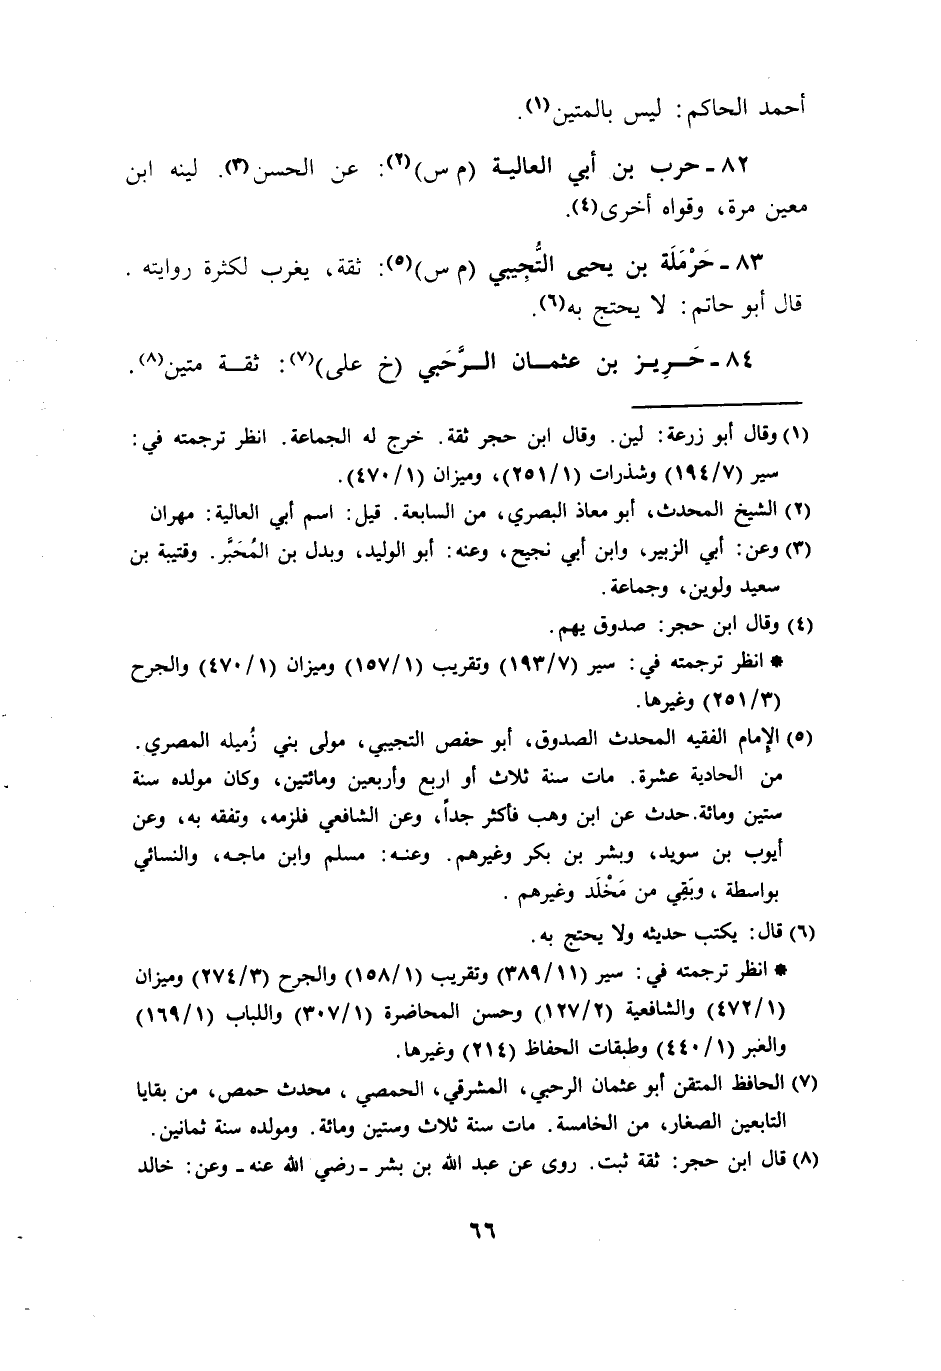 أحمد الحاكم: ليس بالمتين(١).
٨٢ - حرب بن أبي العالية (م س)(٢): عن الحسن(٣). لينه ابن
معين مرة، وقواه أخرى(٤).
٨٣ - حَرْمَلَة بن يحيى التُّجِيبي (م س)(٥): ثقة، يغرب لكثرة روايته .
قال أبو حاتم: لا يحتج به(٦).
٨٤ - حَرِيز بن عثمان الرَّحَبي (خ على)(٧): ثقة متين(٨).
(١) وقال أبو زرعة: لين. وقال ابن حجر ثقة. خرج له الجماعة. انظر ترجمته في:
سير (١٩٤/٧) وشذرات (٢٥١/١)، وميزان (٤٧٠/١).
(٢) الشيخ المحدث، أبو معاذ البصري، من السابعة. قيل: اسم أبي العالية: مهران
(٣) وعن: أبي الزبير، وابن أبي نجيح، وعنه: أبو الوليد، وبدل بن المُحَبَّر. وقتيبة بن
سعيد ولوين، وجماعة.
(٤) وقال ابن حجر: صدوق يهم.
* انظر ترجمته في: سير (١٩٣/٧) وتقريب (١٥٧/١) وميزان (٤٧٠/١) والجرح
(٢٥١/٣) وغيرها.
(٥) الإمام الفقيه المحدث الصدوق، أبو حفص التجيبي، مولى بني زُميله المصري.
من الحادية عشرة. مات سنة ثلاث أو اربع وأربعين ومائتين، وكان مولده سنة
ستين ومائة. حدث عن ابن وهب فأكثر جداً، وعن الشافعي فلزمه، وتفقه به، وعن
أيوب بن سويد، وبشر بن بكر وغيرهم. وعنه: مسلم وابن ماجه، والنسائي
بواسطة ، وبَقِي من مَخْلَد وغيرهم .
(٦) قال: يكتب حديثه ولا يحتج به.
* انظر ترجمته في: سير (٣٨٩/١١) وتقريب (١٥٨/١) والجرح (٢٧٤/٣) وميزان
(٤٧٢/١) والشافعية (١٢٧/٢) وحسن المحاضرة (٣٠٧/١) واللباب (١٦٩/١)
والعبر (٤٤٠/١) وطبقات الحفاظ (٢١٤) وغيرها.
(٧) الحافظ المتقن أبو عثمان الرحبي، المشرقي، الحمصي ، محدث حمص، من بقايا
التابعين الصغار، من الخامسة. مات سنة ثلاث وستين ومائة. ومولده سنة ثمانين.
(٨) قال ابن حجر: ثقة ثبت. روى عن عبد الله بن بشر - رضي الله عنه - وعن: خالد
٦٦